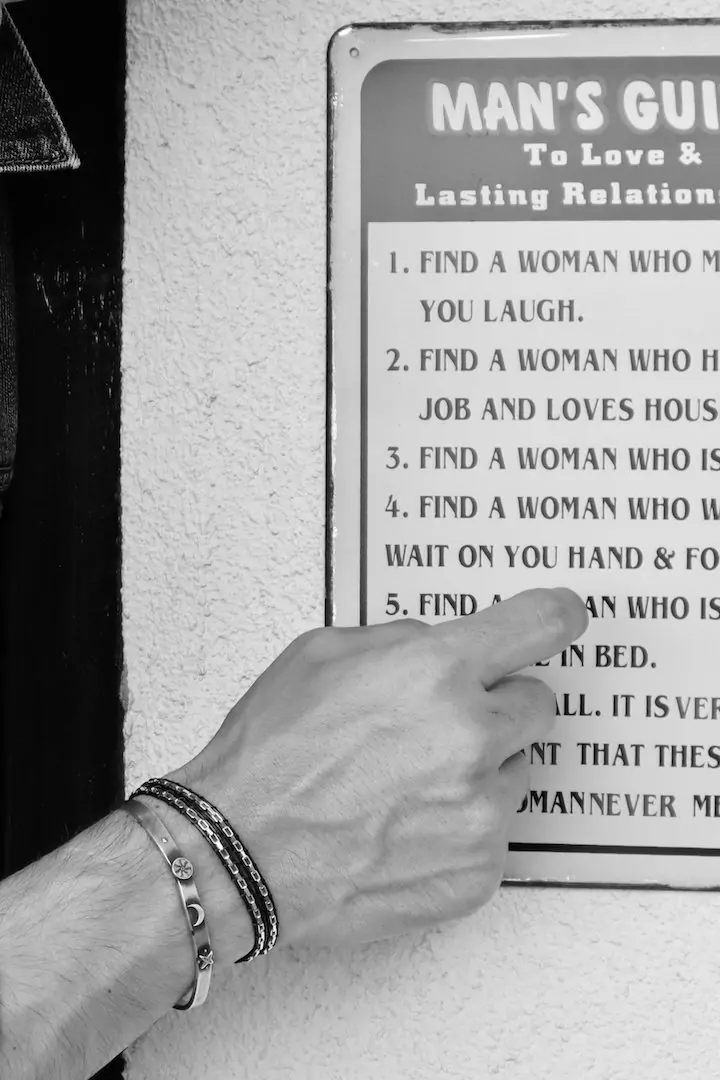 MAN'S GUI
To Love &
Lasting Relation
1. FIND A WOMAN WHO M
YOU LAUGH.
2. FIND A WOMAN WHO H
JOB AND LOVES HOUS
3. FIND A WOMAN WHO IS
4. FIND A WOMAN WHO W
WAIT ON YOU HAND & FO
5. FIND AN WHO IS
IN BED.
ALL. IT IS VER
NT THAT THES
OMANNEVER ME